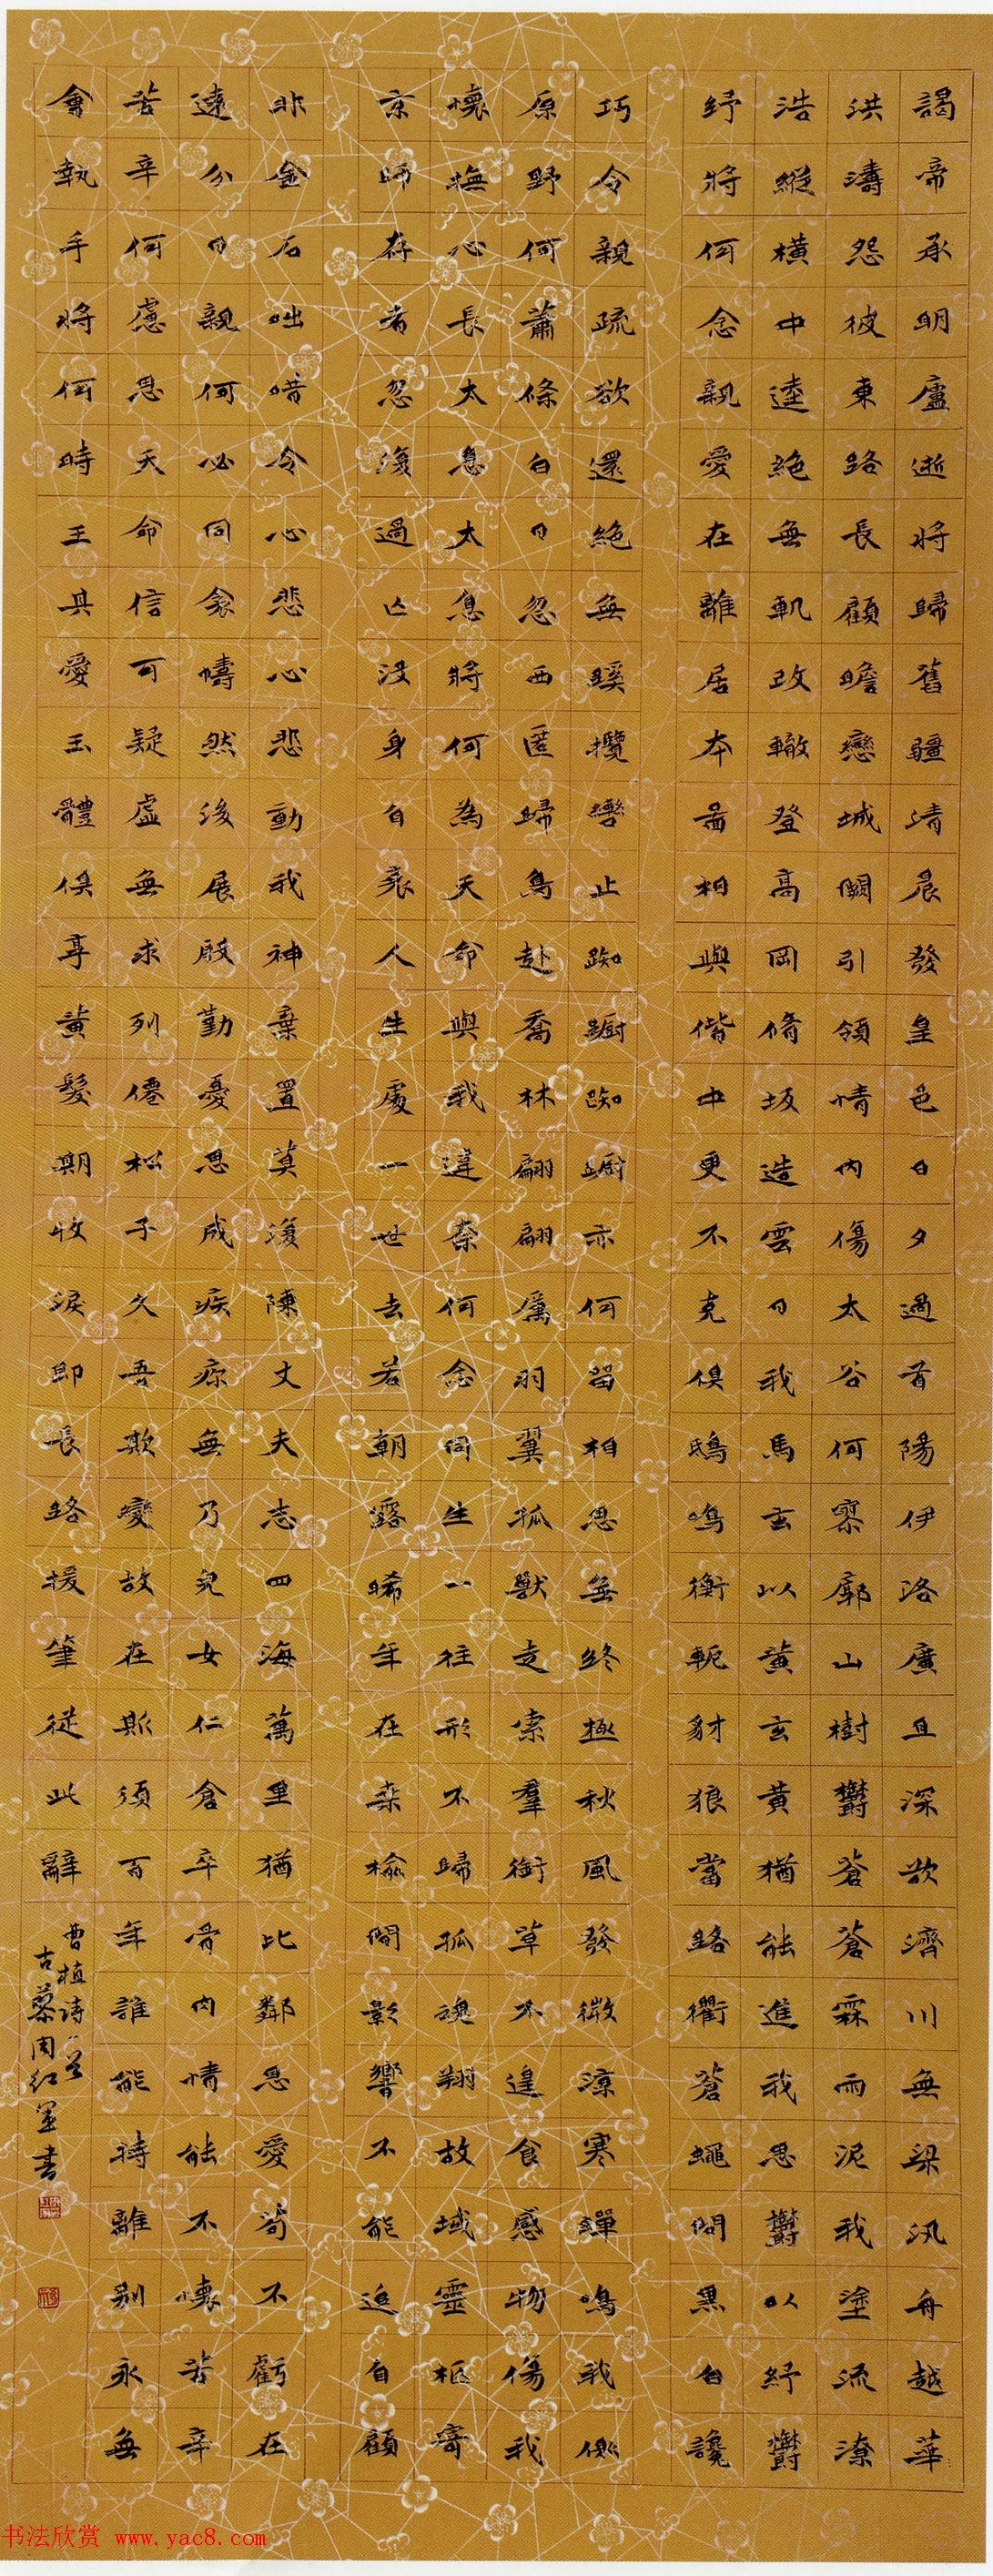 謁帝承明廬逝將歸舊疆清晨發皇邑日夕過首陽伊洛廣且深欲濟川無梁汎舟越華
洪濤怨彼東路長顧瞻戀城闕引領情內傷太谷何寥廓山樹鬱蒼蒼霖雨泥我塗流潦
浩縱橫中逵絕無軌改轍登高岡脩坂造雲日我馬玄以黃玄黃猶能進我思鬱以紓鬱
紓將何念親愛在離居本啚相與偕中更不克俱鴟鳴衡軛豺狼當路衢蒼蠅間黑白讒
巧令親疏欲還絕無蹊攬轡止踟躕踟躕亦何留相思無終極秋風發微涼寒蟬鳴我側
原野何蕭條白日忽西匿歸鳥赴喬林翩翩厲羽翼孤獸走索羣銜草不遑食感物傷我
懷撫心長太息太息將何為天命與我違奈何念同生一往形不歸孤魂翔故域靈柩寄
京師存者忽復過亡沒身自衰人生處一世去若朝露晞年在桑榆間影響不能追自顧
非金石咄唶令心悲心悲動我神棄置莫復陳丈夫志四海萬里猶比鄰恩愛苟不虧在
遠分日親何必同衾幬然後展殷勤憂思成疾疢無乃兒女仁倉卒骨肉情能不懷苦辛
苦辛何慮思天命信可疑虛無求列僊松子久吾欺變故在斯須百年誰能持離別永無
會執手將何時王其愛玉體俱享黃髮期收淚即長路援筆從此辭
曹植詩一首
古蔡周紅軍書
书法欣赏 www.yac8.com